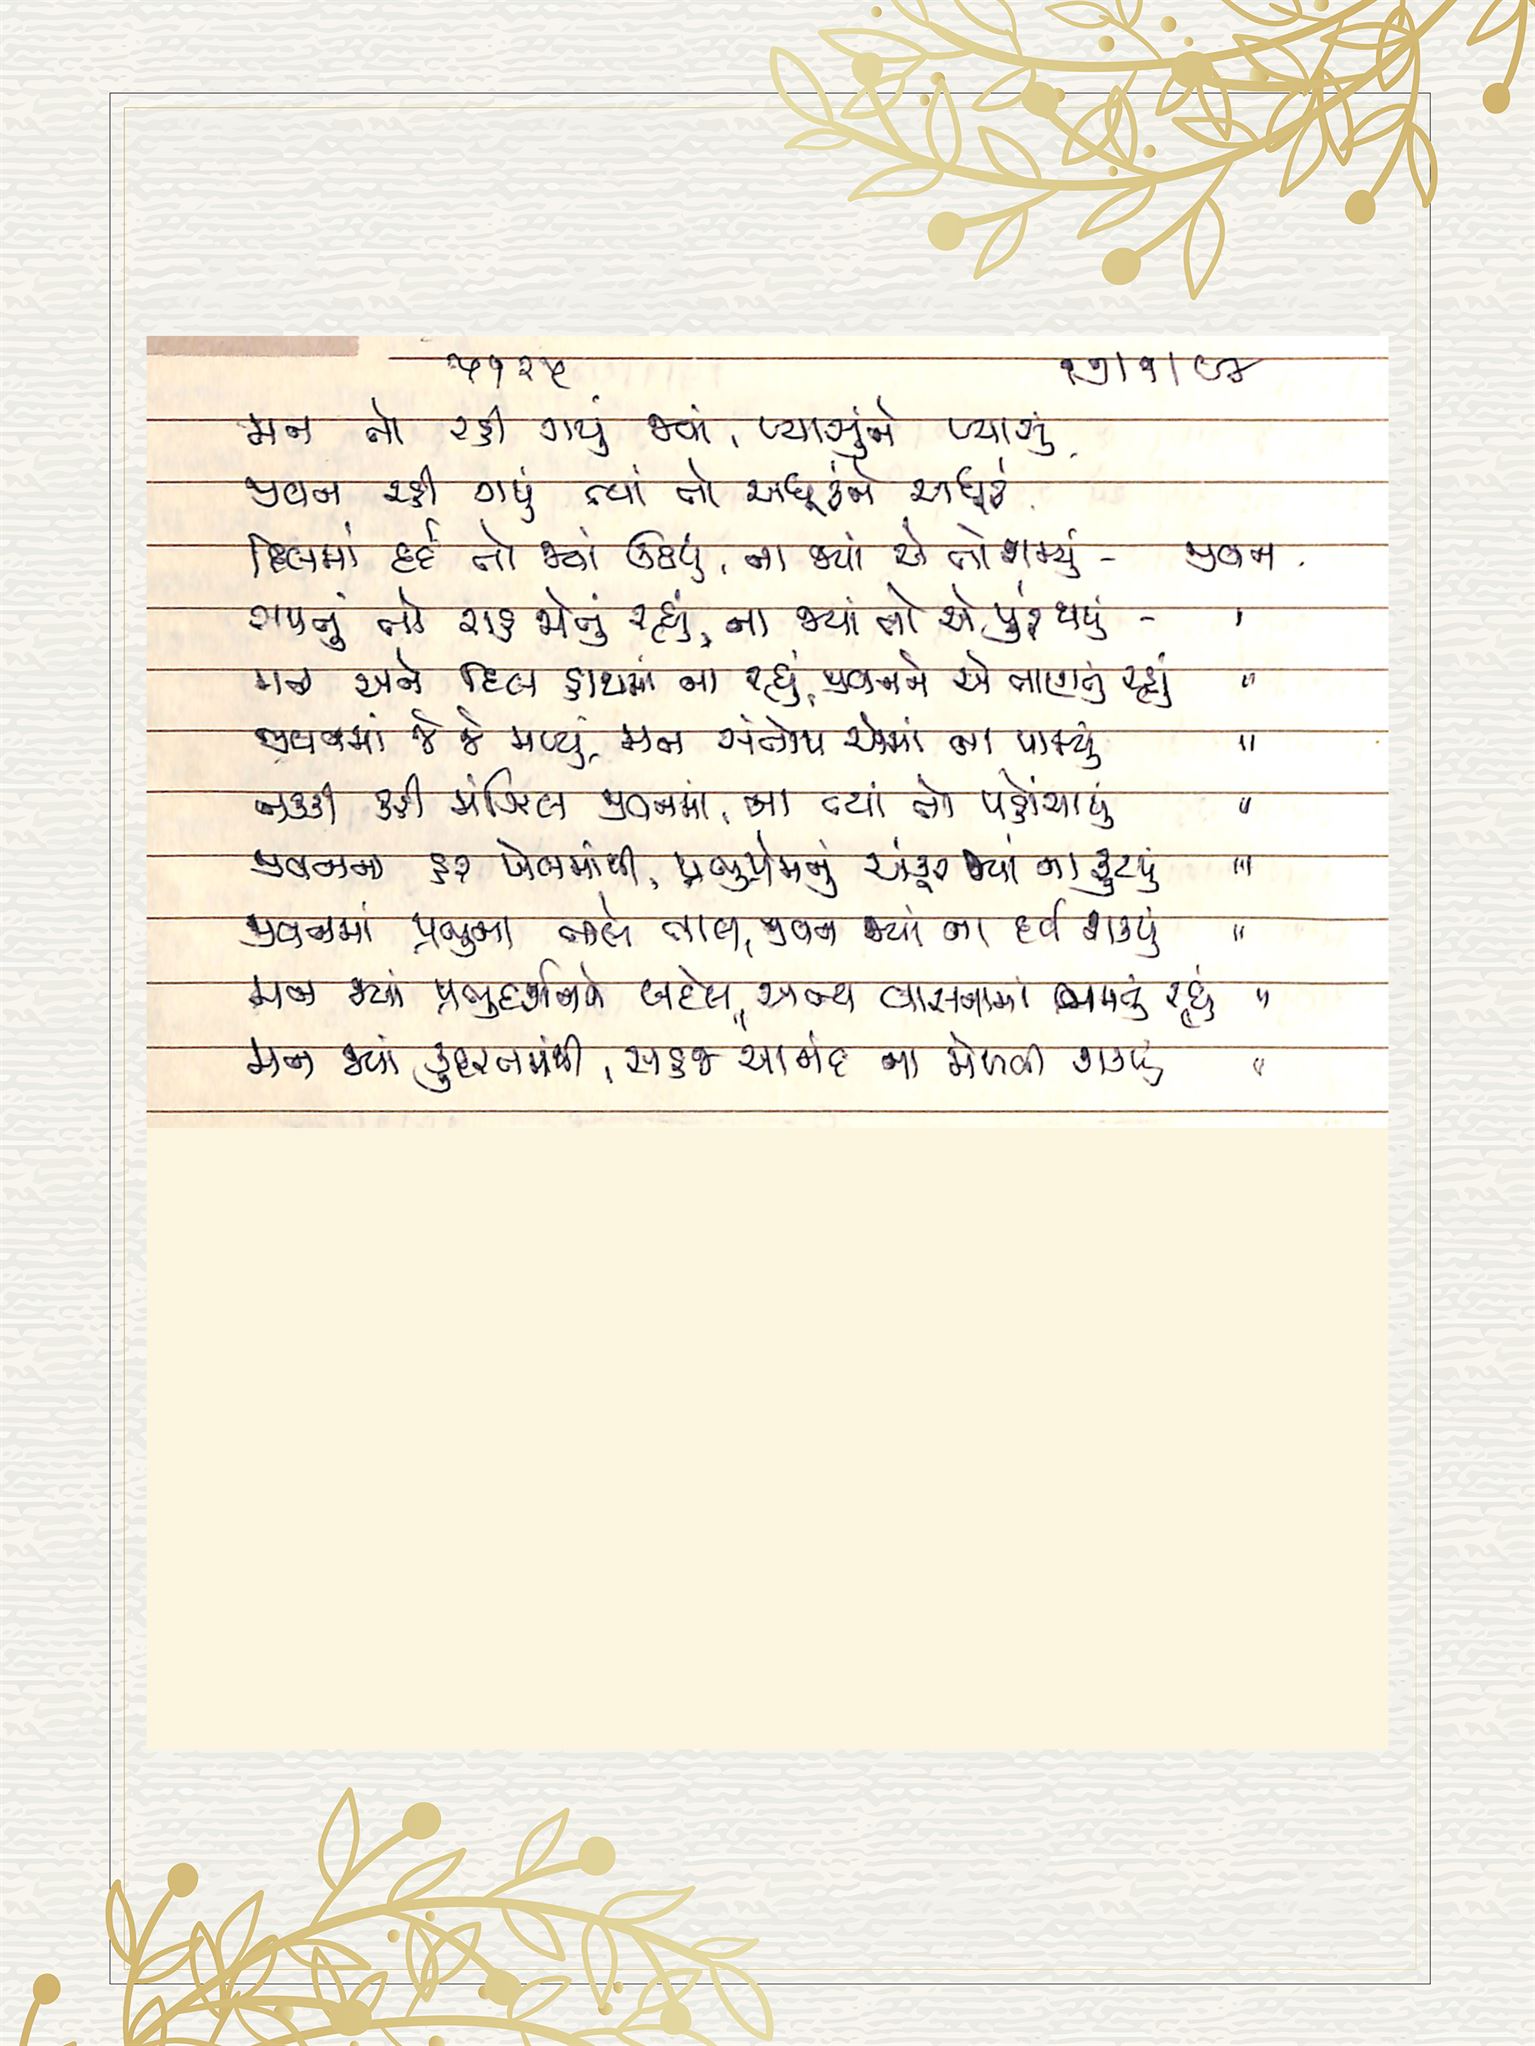 ૫૧૨૫ ૧૭/૧/૯૪
મન તો રહી ગયું જ્યાં, પ્યાસુંને પ્યાસું
જીવન રહી ગયું ત્યાં તો અધૂરુંને અધૂરું
દિલમાં દર્દ તો જ્યાં ઊઠયું, ના જ્યાં એ તો શમ્યું - જીવન
તો રાહ જોતું રહ્યું, ના જ્યાં તો એ પુરું થયું - "
મન અને દિલ હાથમાં ના રહ્યું, જીવનને એ તાણતું રહ્યું "
જીવનમાં જે જે મળ્યું, મન સંતોષ એમાં ના પામ્યું "
નક્કી કરી મંઝિલ જીવનમાં, ના ત્યાં તો પહોંચાયું "
જીવનના હર ખેલમાંથી, પ્રભુપ્રેમનું અંકુર જ્યાં ના ફુટયું "
જીવનમાં પ્રભુના તાલે તાલ, જીવન જ્યાં ના દઈ શકયું "
મન જ્યાં પ્રભુદર્શનને બદલે, અન્ય વાસનામાં ભમતું રહ્યું "
મન જ્યાં કુદરતમાંથી, સહજ આનંદ ના મેળવી શકયું "